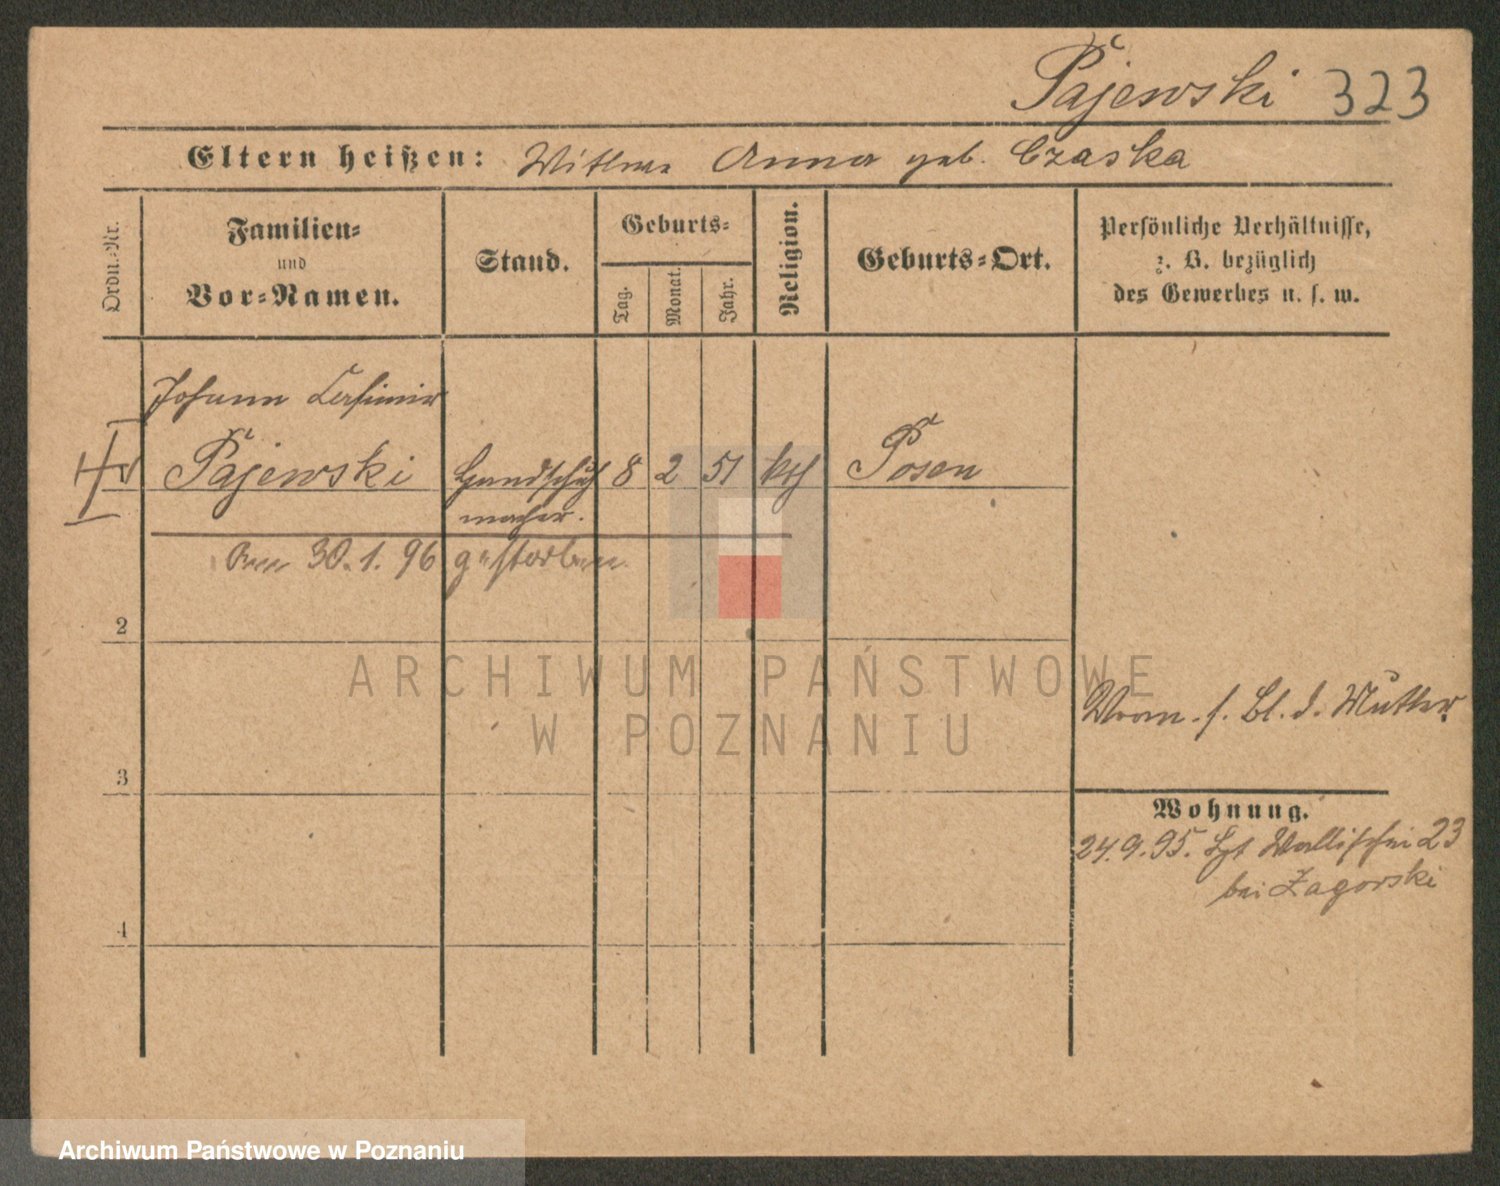 Pajewski 323
Eltern heißen: Wittwe Anna geb. Czaska
Ordn.-Nr.
Familien-
und
Vor-Namen.
Stand.
Geburts-
Tag.
Monat.
Jahr.
Religion.
Geburts-Ort.
Persönliche Verhältnisse,
z. B. bezüglich
des Gewerbes u. s. w.
Johann Casimir
Pajewski Handschuh 8 2 51 kth Posen
macher.
Am 30.1.96 gestorben
2
3
4
Vorm. s. Bl. d. Mutter
Wohnung.
24.9.95. Wallischei 23
bei Zagorski
ARCHIWUM PAŃSTWOWE
W POZNANIU
Archiwum Państwowe w Poznaniu